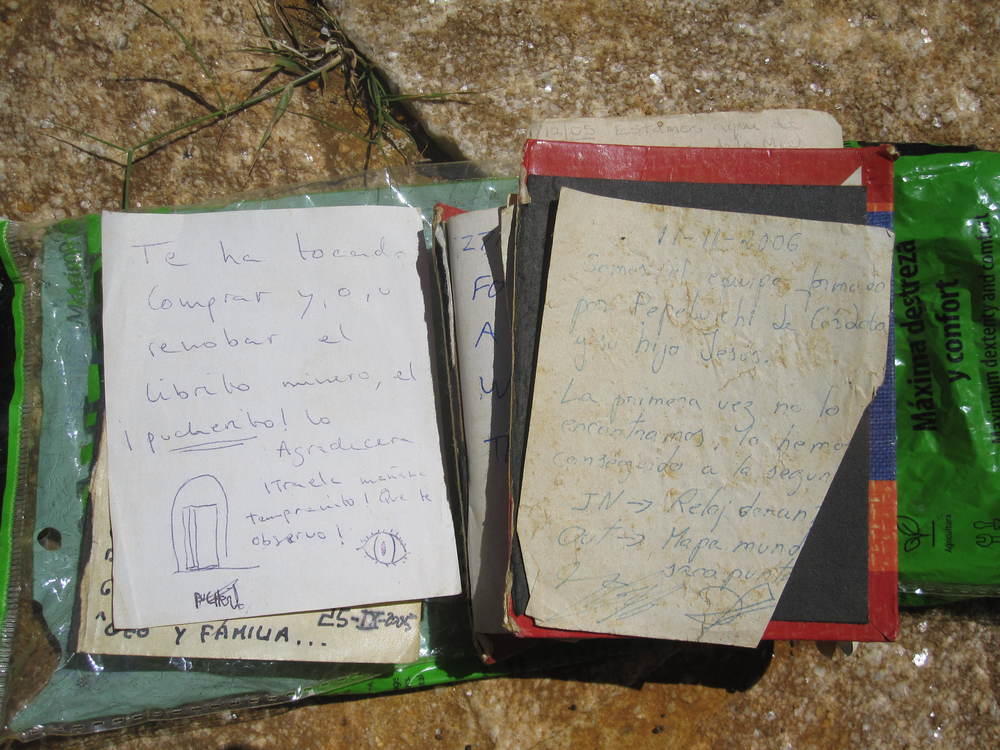 Te ha tocado
Comprar y, o, u
renobar el
librito minero, el
¡pucherito! lo
Agradecera
¡Traela mañana
tempranito! Que te
observo!
PUCHERO
25-IX-2005
Y FÁMILIA...
12/05 Estamos aqui
11-11-2006
Somos del equipo formado
por Pepeluchi de Córdoba
y su hijo Jesús.
La primera vez no lo
encontramos, lo hemo
conseguido a la segun
IN → Reloj
Out → Mapa mund
sacapunta
Máxima destreza
y confort
Maximum dexterity and comfort
Agricultura